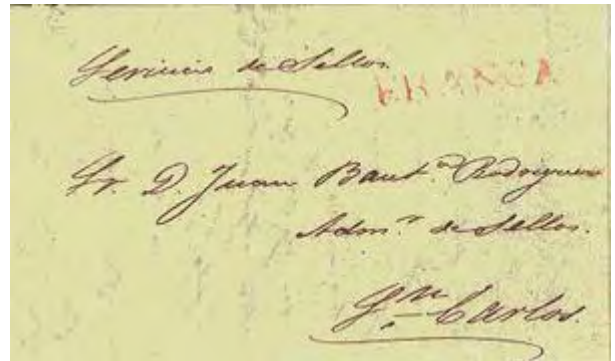 Servicio de Sellos.
FRANCA
Sr. D. Juan Baut.ª Rodriguez
Admr.ᵒ de Sellos.
Sn. Carlos.